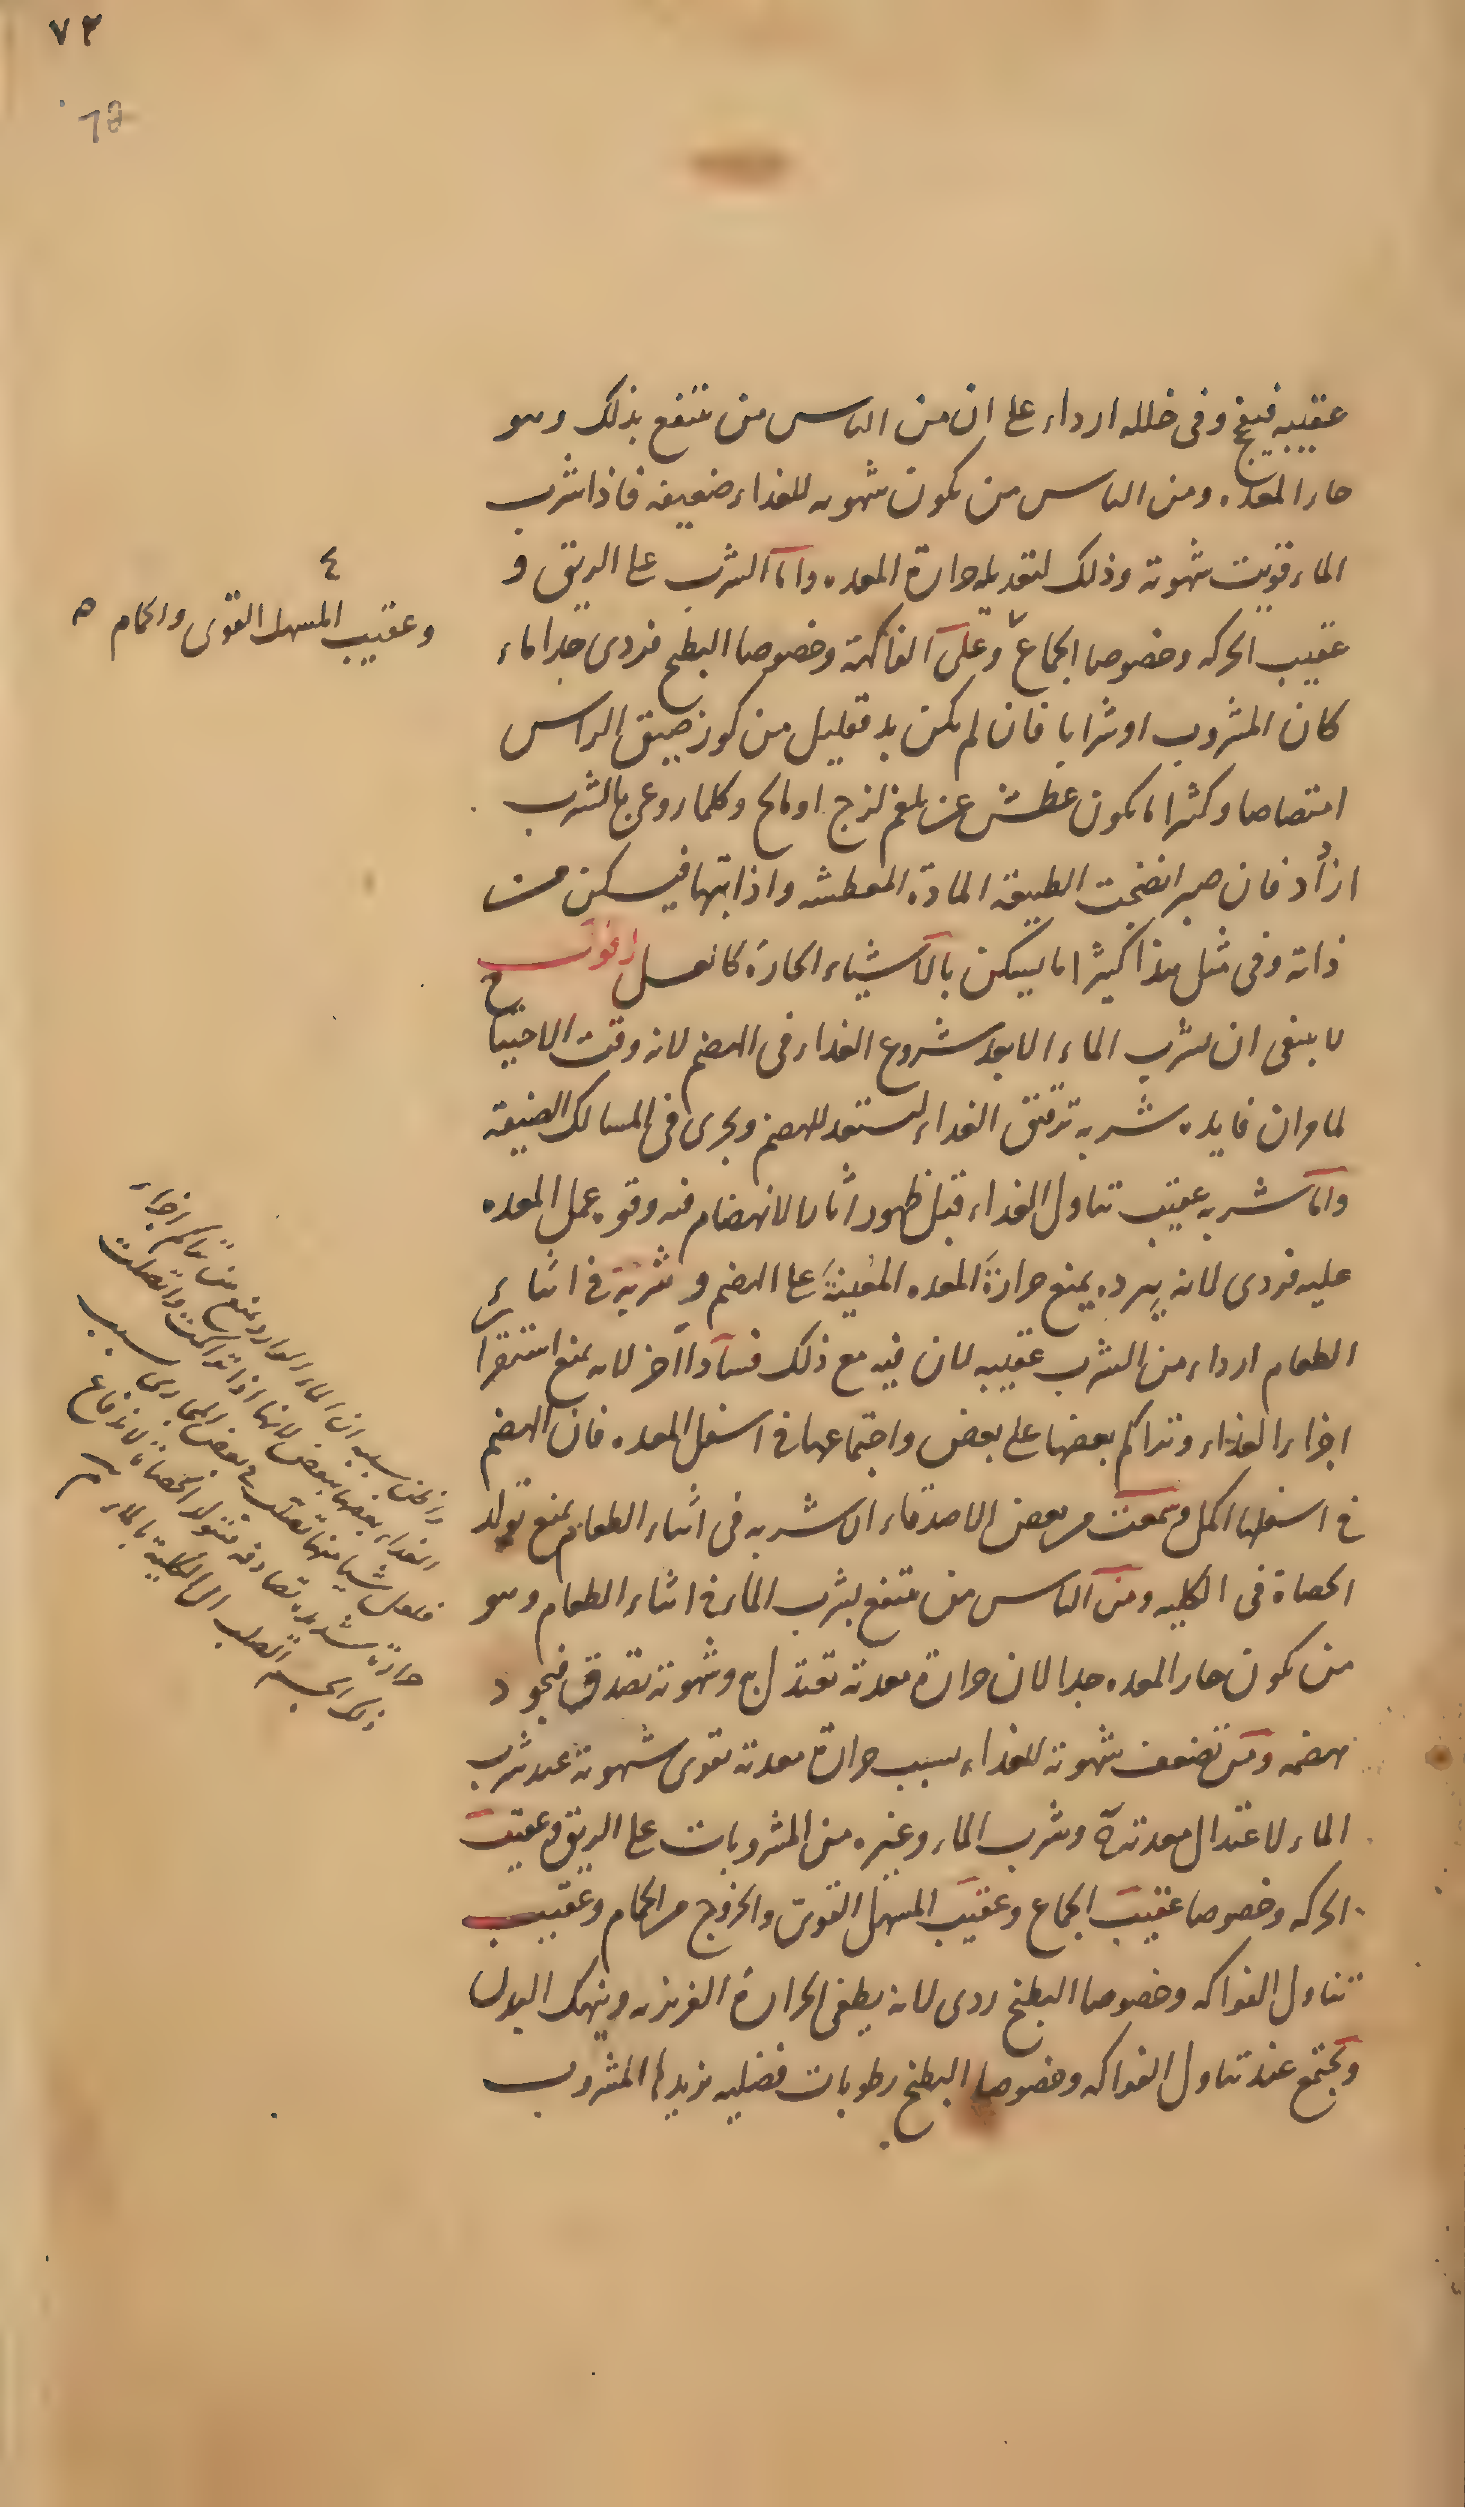 ٧٢
عقيبه فيفج وفى خلله ارداء على ان من الناس من ينتفع بذلك وهو
حار المعده ومن الناس من يكون شهوته للغذاء ضعيفه فاذا شرب
الماء قويت شهوته وذلك لتعديله حرارة المعده واما الشرب على الريق و
عقيب الحركه وخصوصا الجماع وعلى الفاكهة وخصوصا البطيخ فردى جدا ماء
كان المشروب او شرابا فان لم يكن بد فقليل من كوز ضيق الراس
امتصاصا وكثيرا ما يكون عطش عن بلغم لزج او مالح وكلما روعى بالشرب
ازداد فان صبر انضجت الطبيعه المادة المعطشه واذابتها فيسكن من
ذاته وفى مثل هذا كثيرا ما يسكن بالاشياء الحارة كالعسل
لا ينبغى ان يشرب الماء الا بعد شروع الغذاء فى الهضم لانه وقت الاحتيا ج
لما مر ان فايده شربه ترقيق الغذاء ليستعد للهضم ويجرى فى المسالك الضيقه
واما شربه عقيب تناول الغذاء قبل ظهور اثار الانهضام فيه وقوه عمل المعده
عليه فردى لانه يبرده يمنع حرارة المعده المعينة على الهضم و شربه فى اثناء
الطعام ارداء من الشرب عقيبه لان فيه مع ذلك فسادا آخر لانه يمنع استقرا ر
اجزاء الغذاء وتراكم بعضها على بعض واجتماعها فى اسفل المعده فان الهضم
فى اسفلها اكمل وسمعت من بعض الاصدقاء ان شربه فى اثناء الطعام يمنع تولد
الحصاة فى الكليه ومن الناس من ينتفع بشرب الماء فى اثناء الطعام وهو
من يكون حار المعده جدا لان حرارة معدته تعتدل به وشهوته تصدق فيجود
هضمه ومن تضعف شهوته للغذاء بسبب حرارة معدته تقوى شهوته عند شرب
الماء لاعتدال معدته وشرب الماء وغيره من المشروبات على الريق وعقيب
الحركه وخصوصا عقيب الجماع وعقيب المسهل القوى والخروج من الحمام وعقيب
تناول الفواكه وخصوصا البطيخ ردى لانه يطفى الحرارة الغريزيه وينهك البدن
ويجتمع عند تناول الفواكه وخصوصا البطيخ رطوبات فضليه يزيدها المشروب
٤
وعقيب المسهل القوى والحمام
واظن سببه ان الماء البارد يمنع من تراكم اجزاء
الغذاء بعضها ببعض لانها اذا تراكمت واتصلت
فلعل شيا منها تعلق فى بعض المجارى بسبب
حرارة شديدة تصادفه فتتولد الحصاة
ذلك الجسم الصلب الى الكلية بالماء